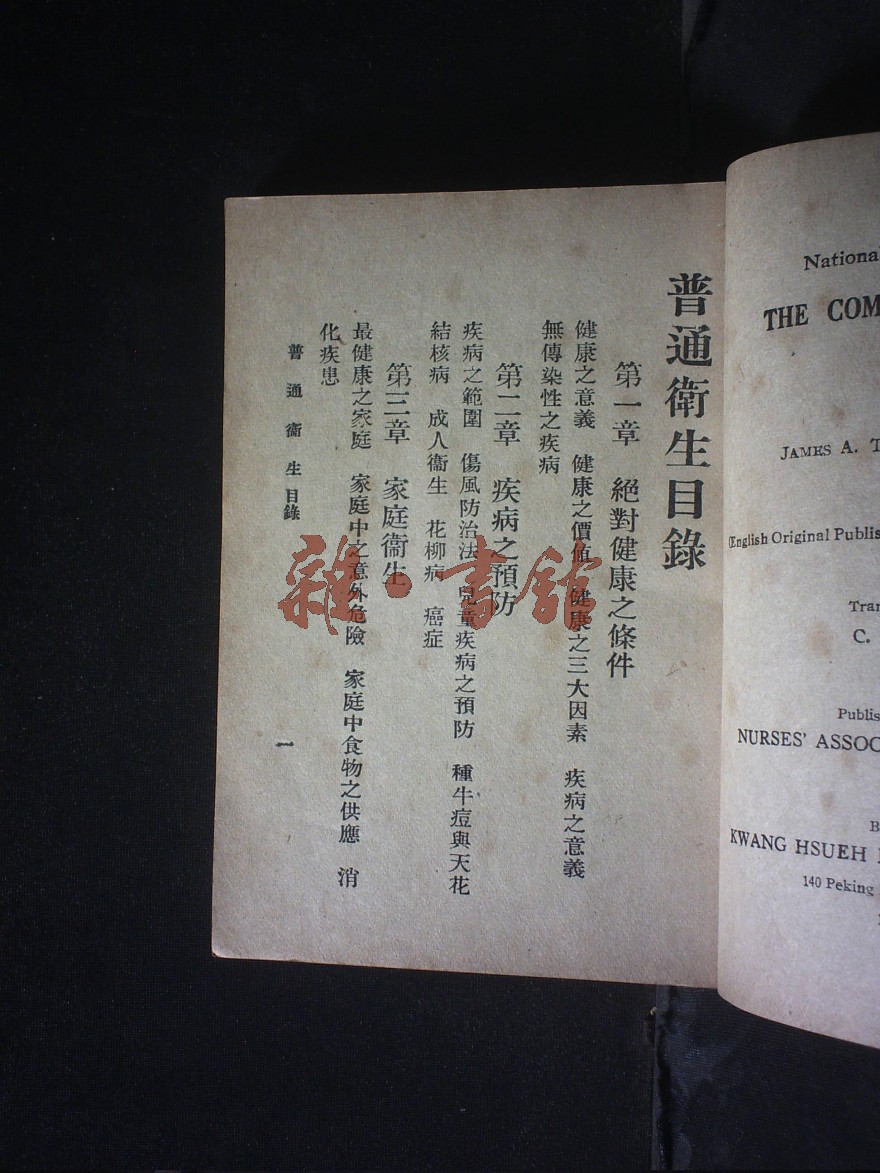 普通衛生目錄
第一章 絕對健康之條件
健康之意義 健康之價值 健康之三大因素 疾病之意義
無傳染性之疾病
第二章 疾病之預防
疾病之範圍 傷風防治法 兒童疾病之預防 種牛痘與天花
結核病 成人衞生 花柳病 癌症
第三章 家庭衞生
最健康之家庭 家庭中之意外危險 家庭中食物之供應 消
化疾患
普通衞生目錄
一
雜·書館
National
THE COM
JAMES A. T
(English Original Publis
Tran
C.
Publis
NURSES' ASSOC
B
KWANG HSUEH
140 Peking